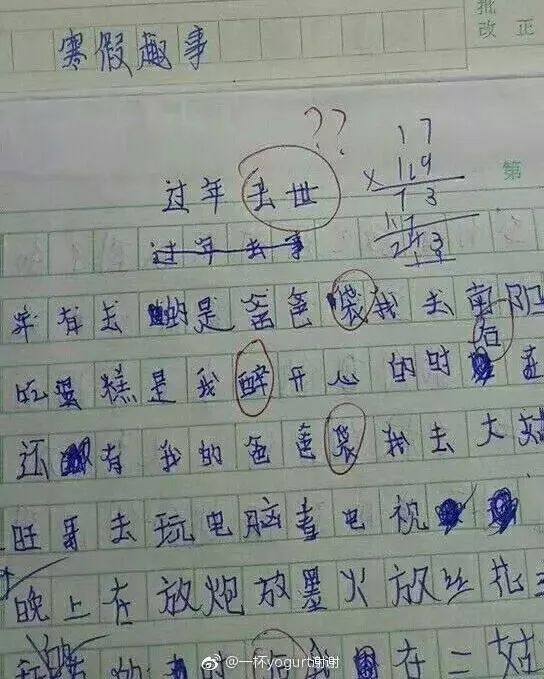 批
改正
寒假趣事
??
17
× 119
过年去世
第
73
过年去事
17
243
是爸爸袋我去南阳
吃蛋糕是我醉开心的时候
还有我的爸爸袋我去大
旺哥去玩电脑看电视
晚上在放炮放墨火放丝花
我在二
@一杯yogurt谢谢